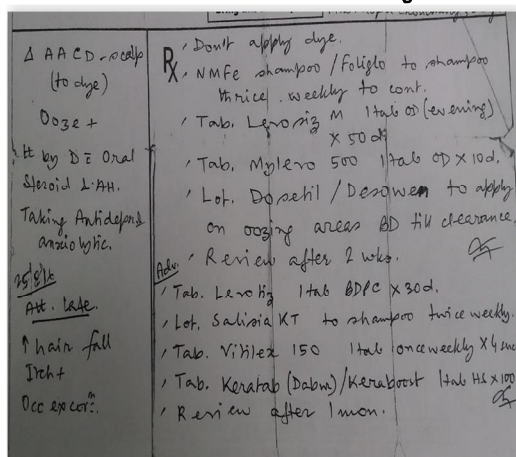 Δ AACD - scalp
(to dye)
Ooze +
by D Oral
Steroid
Taking Antidepres
anxiolytic.
Att. late
↑ hair fall
Itch +
Occ excorn.
Rx
Don't apply dye.
NMFe shampoo / Foliglo to shampoo
thrice weekly to cont.
Tab. Levosiz M 1 tab OD (evening)
X 50 d
Tab. Mylevo 500 1 tab OD X 10d.
Lot. Dosetil / Desowen to apply
on oozing areas BD till clearance.
Review after 2 wks.
Adv.
Tab. 1 tab BDPC X 30d.
Lot. Salisia KT to shampoo twice weekly.
Tab. Vitilex 150 1 tab once weekly X 4
Tab. Keratab (Dabm) / Keraboost 1 tab HS X 100
Review after 1 mon.